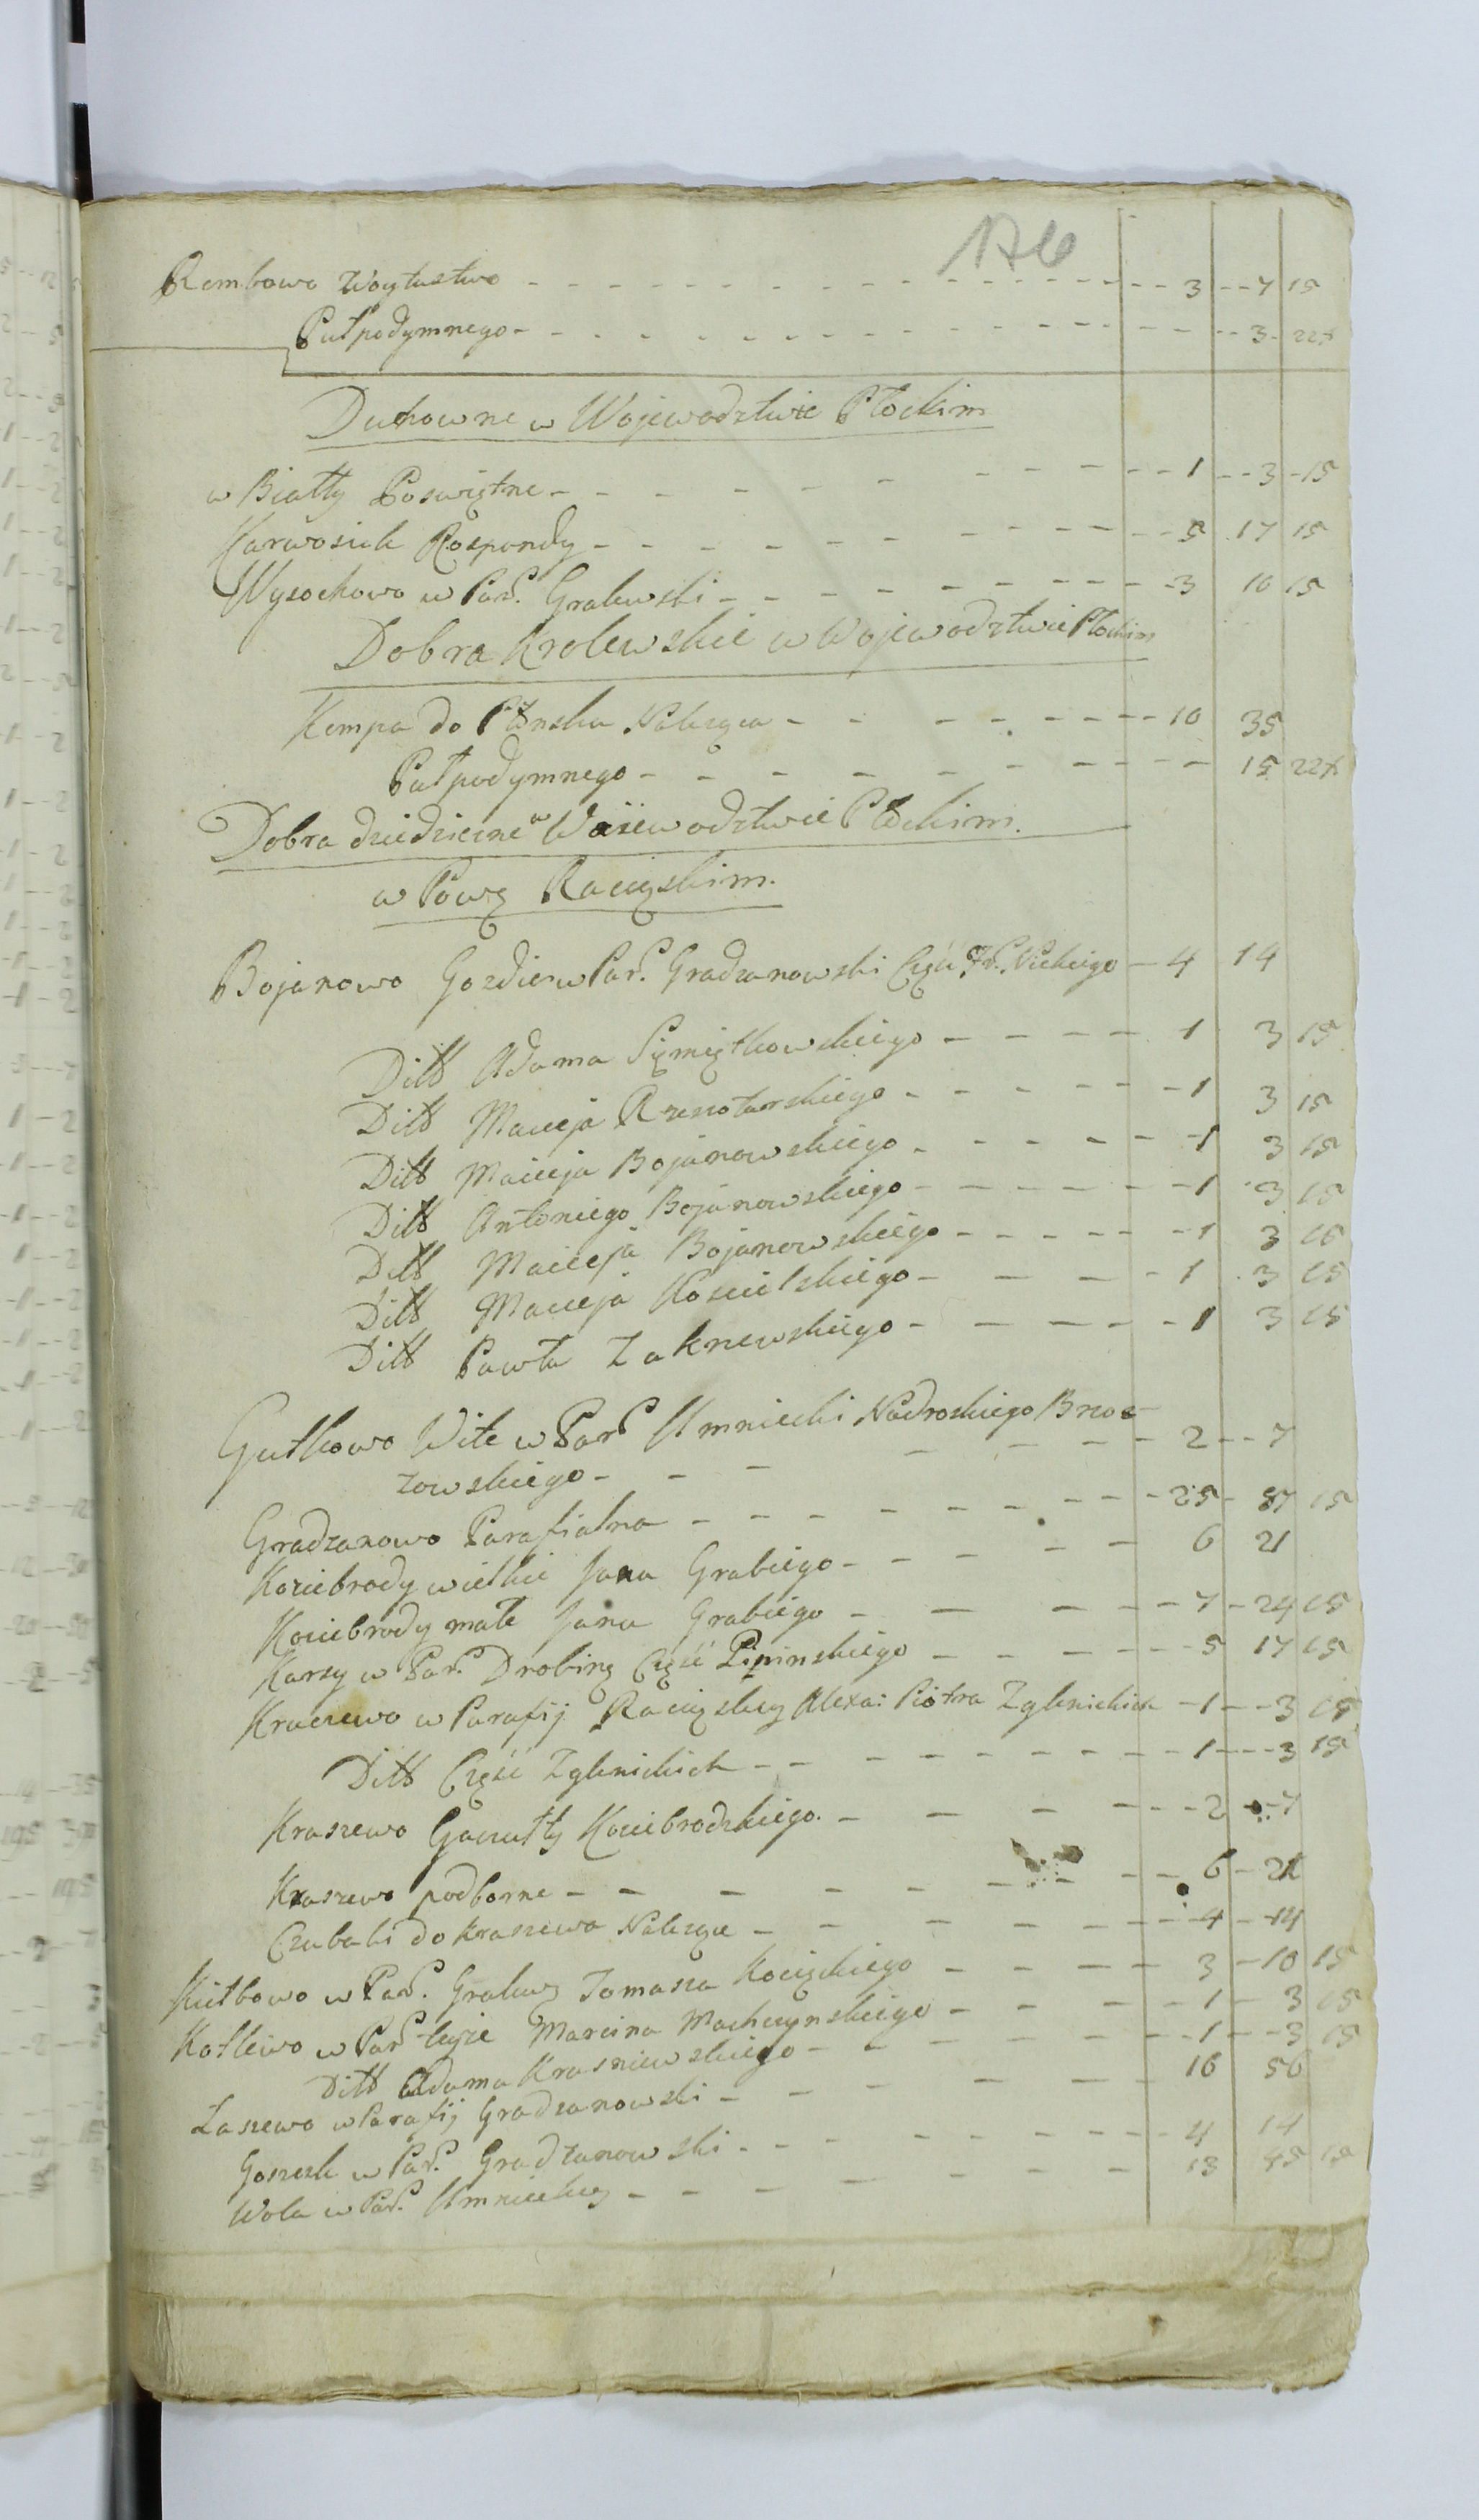 176
Rembowo Woytustwo - - - 3 - - 7 15
Pułpodymnego - - - 3 - 22½
Duchowne w Wojewodztwie Płockim
w Białły Poswiętne - - - 1 - - 3 - 15
Karwosiek Rospondy - - - 5 17 15
Wysochowo w Par. Gralewski - - - 3 10 15
Dobra Krolewskie w Wojewodztwie Płockim
Kempa do Płonska Należąca - - - 10 35
Pułpodymnego - - - 15 22½
Dobra dziedziczne w Wojewodztwie Płockim.
w Pow Raciązkim.
Bojanowo Gozdierw Par. Gradzanowski Część Nickiego - 4 14
Ditt Adama Sęmiętkowskiego - - - 1 3 15
Ditt Macieja Rzeszotarskiego - - - 1 3 15
Ditt Macieja Bojanowskiego - - - 1 3 15
Ditt Antoniego Bojanowskiego - - - 1 3 15
Ditt Macieja Bojanowskiego - - - 1 3 15
Ditt Macieja Koscielskiego - - - 1 3 15
Ditt Pawła Zaknewskiego - - - 1 3 15
Gutkowo Wite w Par Umniecki Nadroskiego Brzo-
zowskiego - - - 2 - - 7
Gradzanowo Parafialna - - - 25 - 87 15
Koziebrody wielkie Jana Grabiego - - - 6 21
Koziebrody małe Jana Grabiego - - - 7 - 24 15
Karsy w Par. Drobinę Część Pipinskiego - - - 5 17 15
Kraczewo w Parafij Raciązkiey Alexa: Piotra Zglenickich - 1 - - 3 15
Ditt Część Zglenickich - - - 1 - - - 3 15
Kraszewo Gaczułty Koziebrodzkiego. - - - 2 - - 7
Kraszewo podborne - - - 6 - 21
Czubaki do Kraszewa Należące - - - 4 - 14
Kiełbowo w Par. Gralewę Tomasza Kocięckiego - - - 3 - 10 15
Kotlewo w Par teyże Marcina Machczynskiego - - - 1 - 3 15
Ditt Adama Krasniewskiego - - - 1 - - 3 15
Zaszewo w Parafij Gradzanowski - - - 16 56
Goszczk w Par. Gradzanowski - - - 4 14
Wola w Par. Umnieckiey - - - 13 45 15